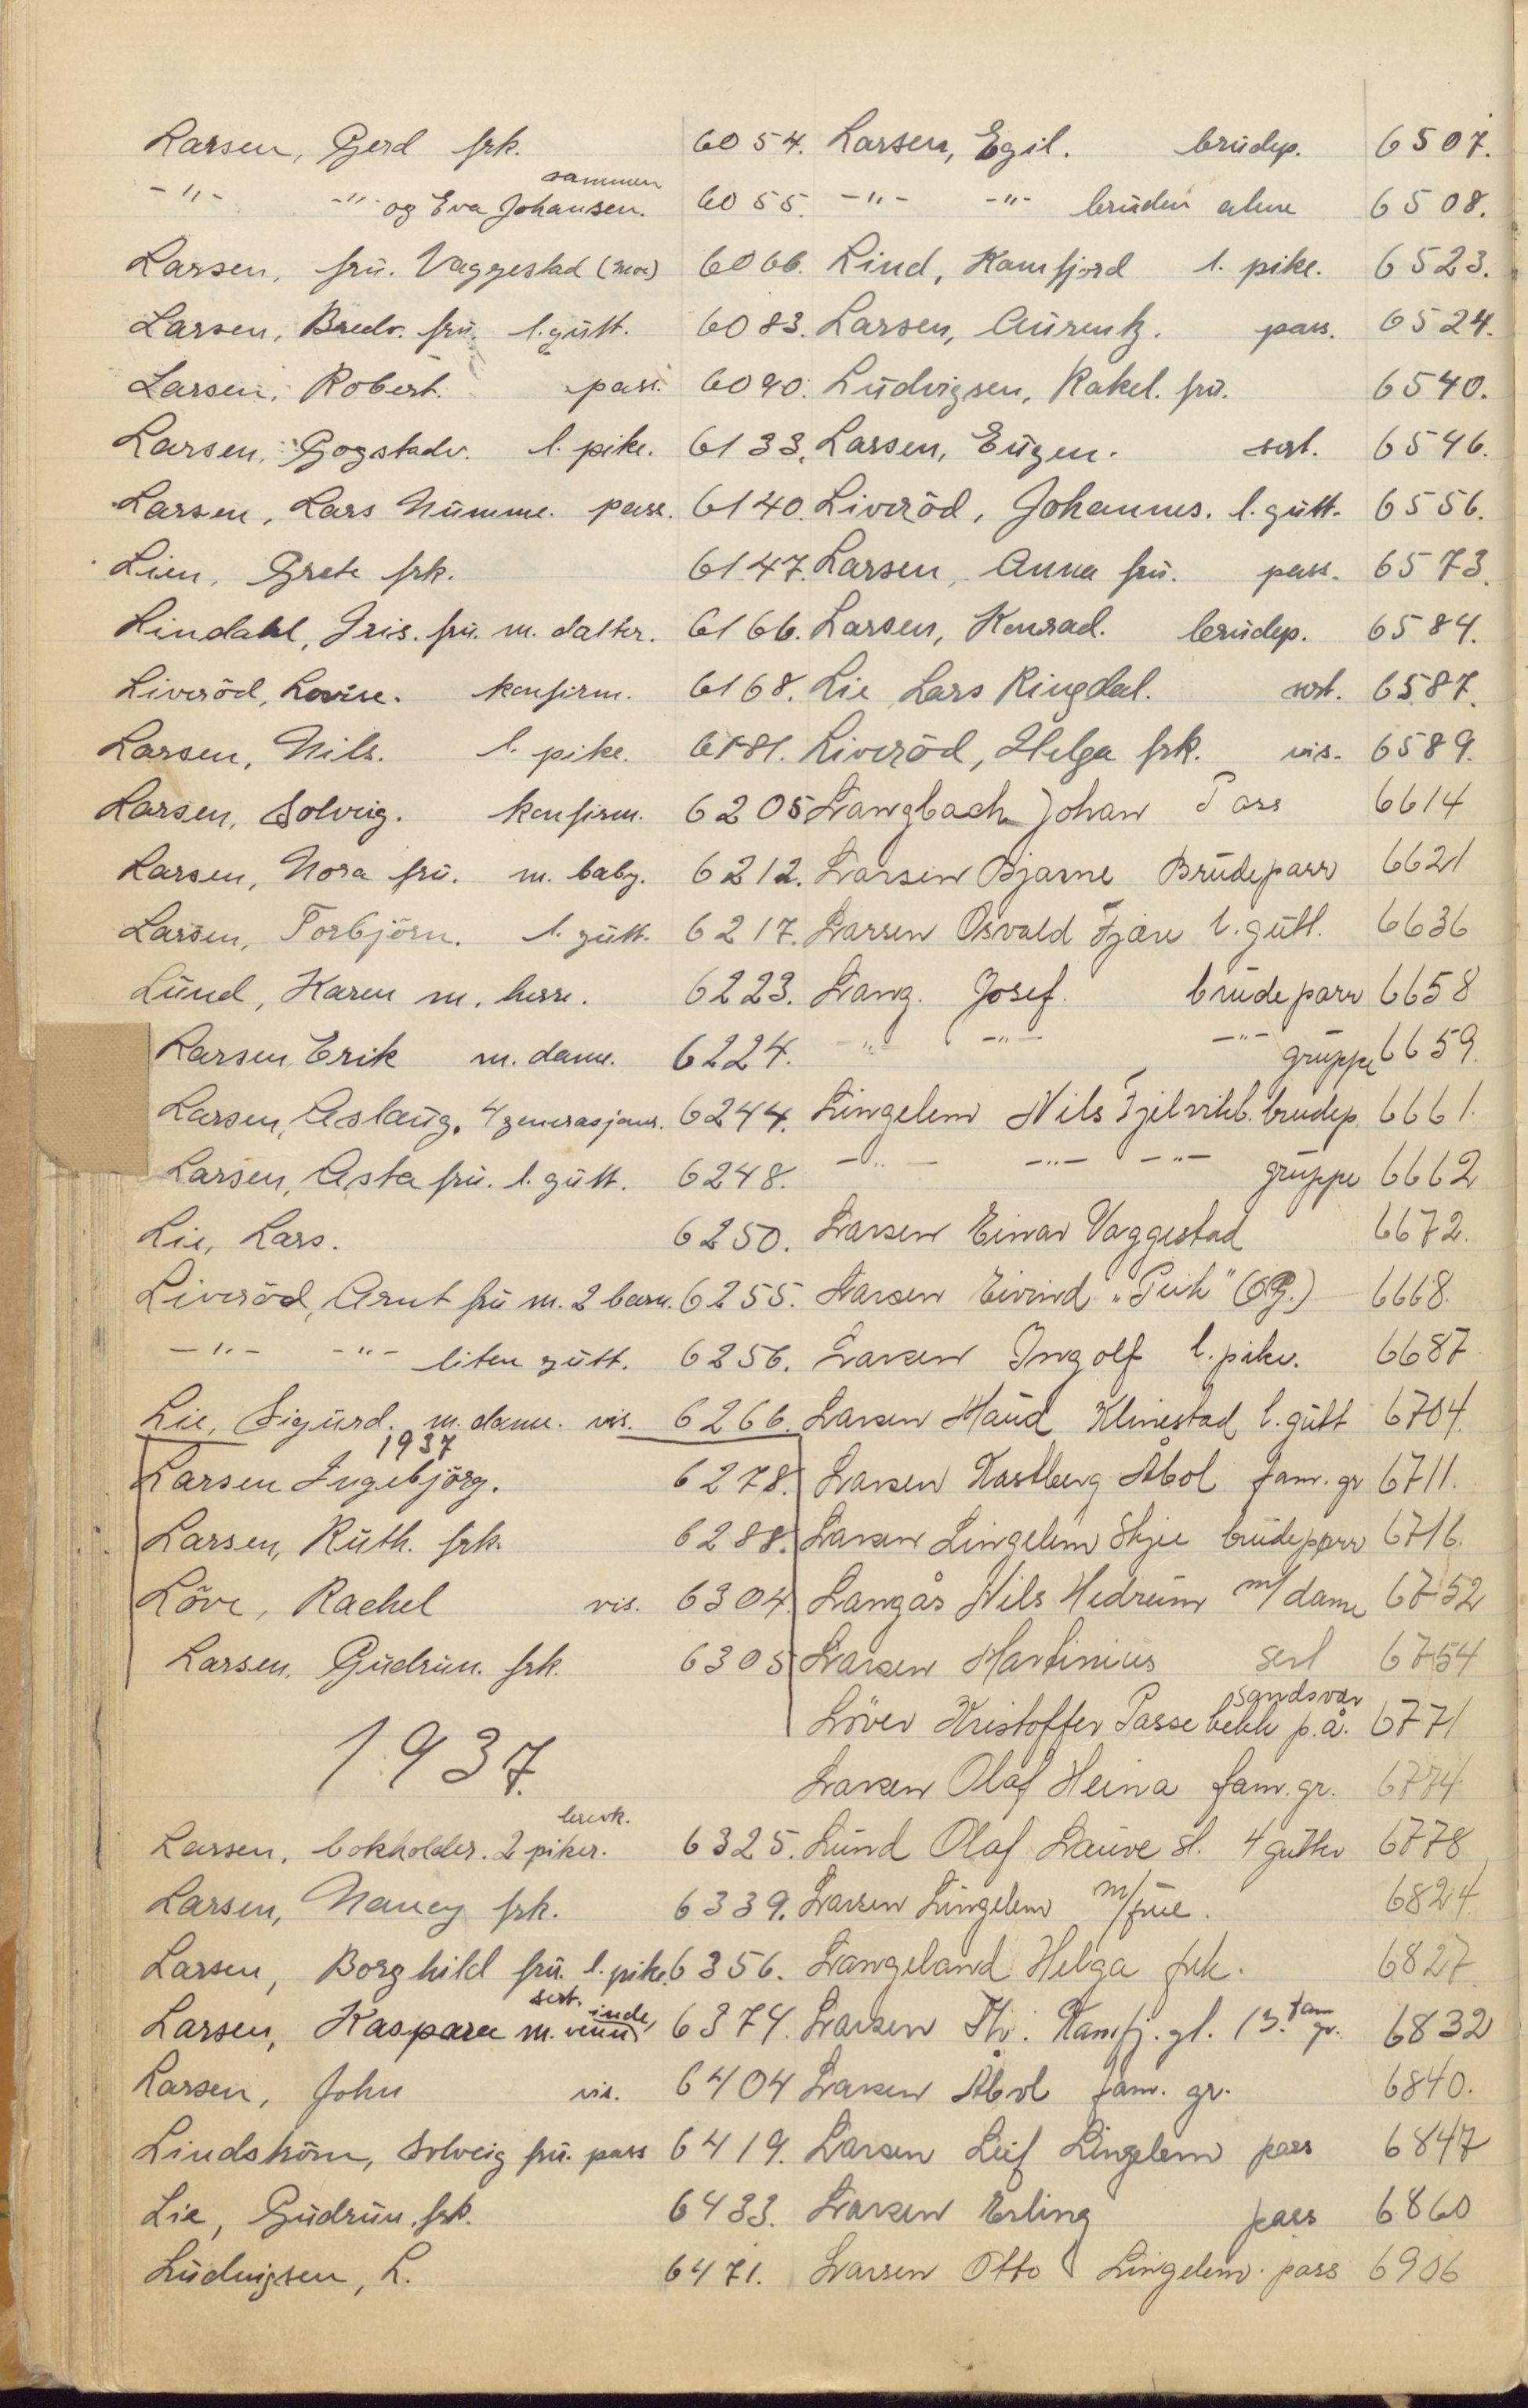 Larsen, Gerd frk. 6054.
-"- -"- og Eva Johansen. sammen 6055.
Larsen, frü. Vaggestad (Moe) 6066.
Larsen, Bredv. frü. l. gütt. 6083.
Larsen, Robert. pass. 6090.
Larsen, Gogstadv. l. pike. 6133.
Larsen, Lars Nümme. pass. 6140.
Lien, Grete frk. 6147.
Lindahl, Iris. frü. m. datter. 6166.
Liveröd, Lovise. konfirm. 6168.
Larsen, Nils. l. pike. 6181.
Larsen, Solveig. konfirm. 6205
Larsen, Nora frü. m. baby. 6212.
Larsen, Torbjörn. l. gütt. 6217.
Lünd, Karen m. herre. 6223.
Larsen, Erik m. dame. 6224.
Larsen, Aslaüg. 4 generasjoner. 6244.
Larsen, Asta frü. l. gütt. 6248.
Lie, Lars. 6250.
Liveröd, Arnt frü m. 2 barn. 6255.
-"- -"- liten gütt. 6256.
Lie, Sigürd. m. dame. vis. 6266.
1937
Larsen Ingebjörg. 6278.
Larsen, Rüth. frk. 6288.
Löve, Rachel vis. 6304.
Larsen, Güdrün. frk. 6305
1937.
Larsen, bokholder. 2 piker. brevk. 6325.
Larsen, Nancy frk. 6339.
Larsen, Borghild frü. l. pike. 6356.
Larsen, Kaspara m. venninde, sert. 6374.
Larsen, John vis. 6404
Lindström, Solveig frü. pass 6419.
Lie, Güdrün. frk. 6433.
Lüdvigsen, L. 6471.
Larsen, Egil. brüdep. 6507.
-"- -"- brüden alene 6508.
Lind, Kamfjord l. pike. 6523.
Larsen, Laürentz. pass. 6524.
Lüdvigsen, Rakel. frü. 6540.
Larsen, Eügen. sert. 6546.
Liveröd, Johannes. l. gütt. 6556.
Larsen, Anna frü. pass. 6573.
Larsen, Konrad. brüdep. 6584.
Lie Lars Ringdal. sert. 6587.
Liveröd, Helga frk. vis. 6589.
Langbach Johan Pass 6614
Larsen Bjarne Brüdepar 6621
Larsen Osvald Fjære l. gütt. 6636
Lang. Josef. brüdepar 6658
-"- -"- -"- grüppe 6659.
Lingelem Nils Fjelvikb. brudep. 6661.
-"- -"- -"- grüppe 6662
Larsen Einar Vaggestad 6672.
Larsen Eivind "Peik" 6668.
Larsen Ingolf l. pike. 6687
Larsen Maüd Klinestad l. gütt 6704.
Larsen Kastberg Åbol fam. gr 6711.
Larsen Lingelem Skjee brüdepar 6716.
Langås Nils Hedrüm m/dame 6752
Larsen Martiniüs sert 6754
Löver Kristoffer Passebekk p.å. Sandsvær 6771
Larsen Olaf Heina fam. gr. 6774
Lünd Olaf Laüve st. 4 gütter 6778
Larsen Lingelem m/früe. 6824.
Langeland Helga frk. 6827
Larsen Th. Kamfj. gl. 13. fam gr. 6832
Larsen Åbol fam. gr. 6840.
Larsen Leif Lingelem pass 6847
Larsen Erling pass 6860
Larsen Otto Lingelem. pass 6906